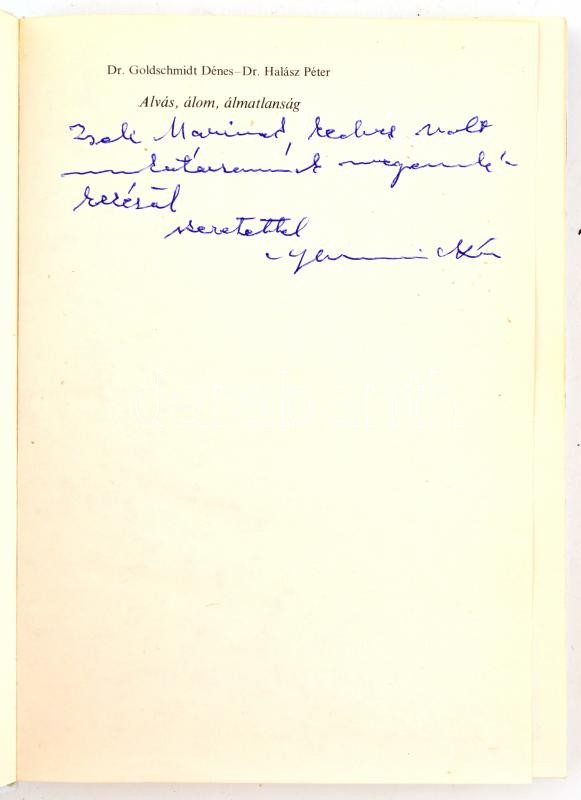 Dr. Goldschmidt Dénes–Dr. Halász Péter
Alvás, álom, álmatlanság
Zsoli Marinak, kedves volt
munkatársamnak megemlé-
kezésül
szeretettel